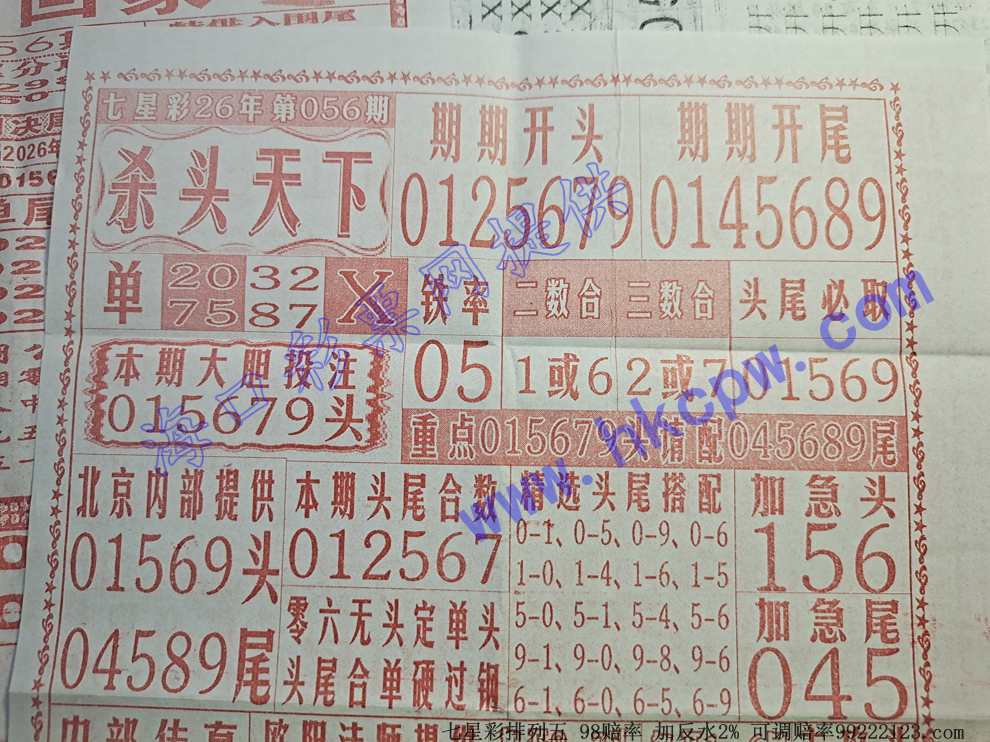 七星彩26年第056期
杀头天下
期期开头
0125679
期期开尾
0145689
单
20 32
75 87
X
铁率
05
二数合
1或6
三数合
2或7
头尾必取
01569
本期大胆投注
015679头
重点015679头搭配045689尾
北京内部提供
01569头
04589尾
本期头尾合数
012567
零六无头定单头
头尾合单硬过钢
精选头尾搭配
0-1、0-5、0-9、0-6
1-0、1-4、1-6、1-5
5-0、5-1、5-4、5-6
9-1、9-0、9-8、9-6
6-1、6-0、6-5、6-9
加急头
156
加急尾
045
海口彩票网提供
www.hkcpw.com
七星彩排列五 98赔率 加反水2% 可调赔率99222123.com
2026年